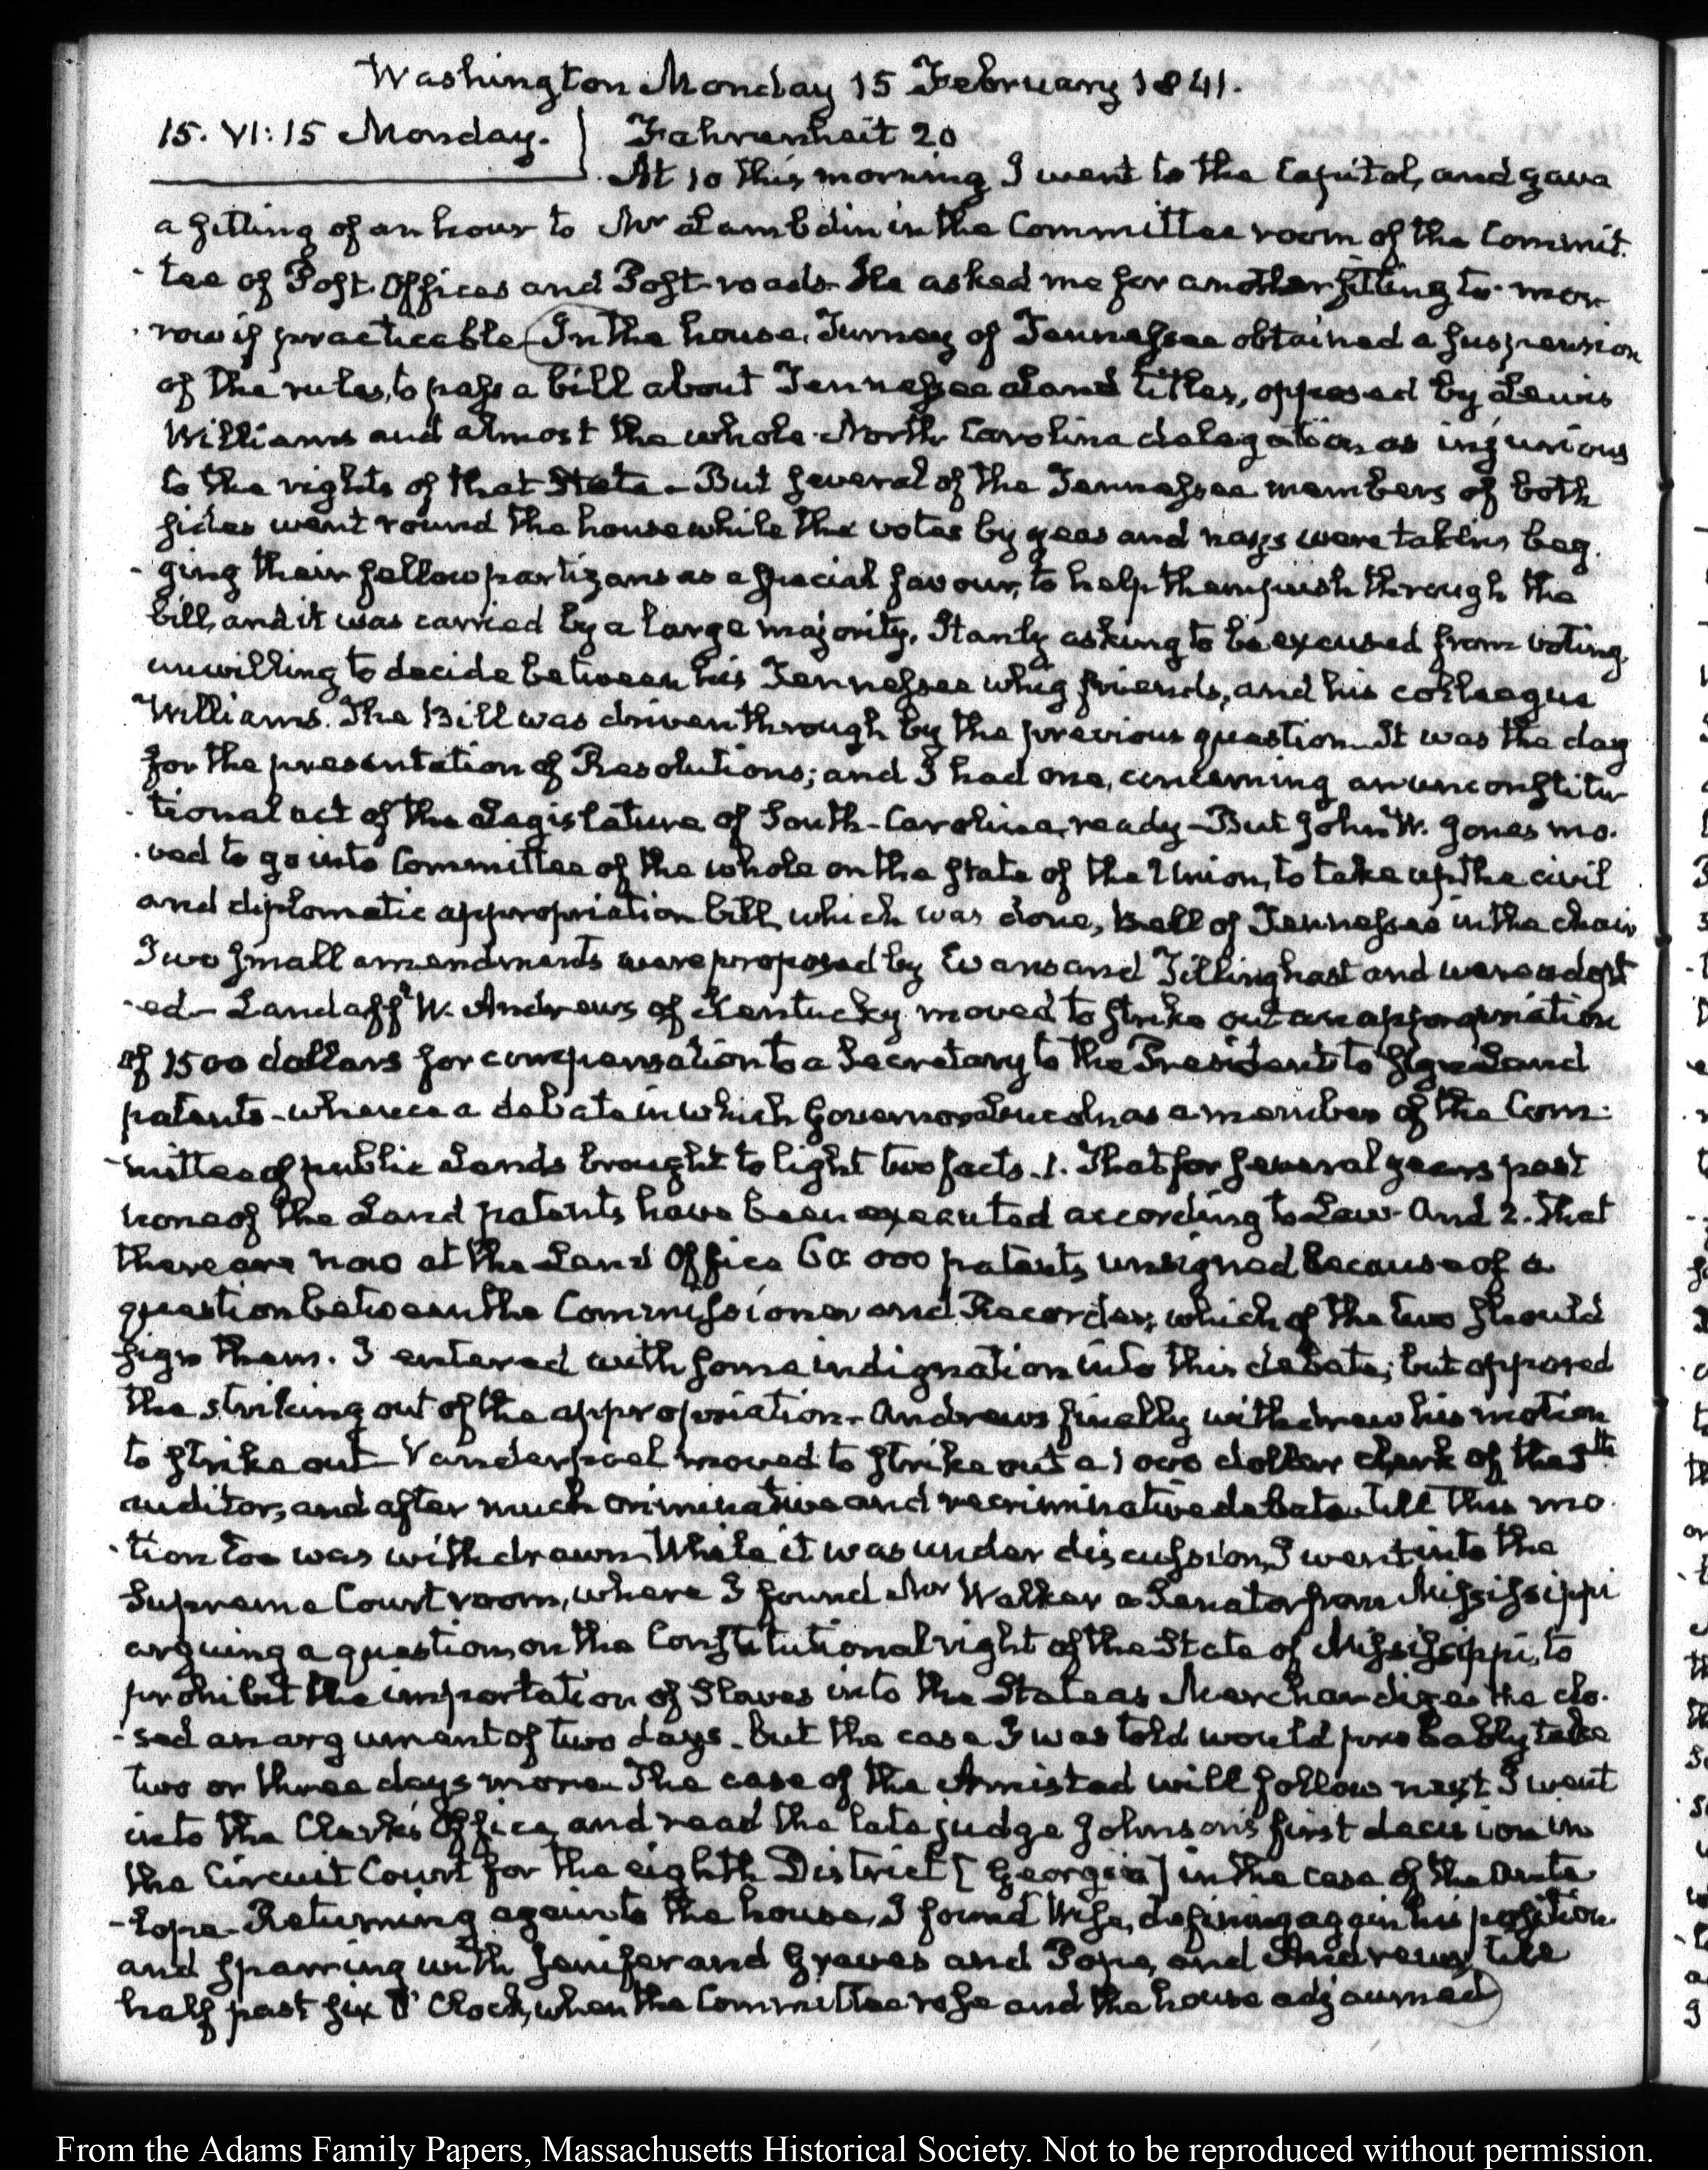 Washington Monday 15 February 1841.
15. VI:15 Monday. Fahrenheit 20
At 10 this morning I went to the Capitol, and gave
a sitting of an hour to Mr Lambdin in the Committee room of the Commit-
-tee of Post Offices and Post-roads. He asked me for another sitting to-mor-
-row if practicable. In the house, Turney of Tennessee obtained a suspension
of the rules, to pass a bill about Tennessee Land titles, opposed by Lewis
Williams and almost the whole North Carolina delegation as injurious
to the rights of that State. But several of the Tennessee members of both
sides went round the house while the votes by yeas and nays were taking beg-
-ging their fellow partizans as a special favour, to help them push through the
bill, and it was carried by a large majority, Stanly asking to be excused from voting,
unwilling to decide between his Tennessee whig friends, and his colleague
Williams. The Bill was driven through by the previous question. It was the day
for the presentation of Resolutions; and I had one, concerning an unconstitu-
-tional act of the Legislature of South-Carolina, ready. But John W. Jones mo-
-ved to go into Committee of the whole on the state of the Union, to take up the civil
and diplomatic appropriation bill, which was done, Bell of Tennessee in the chair
Two small amendments were proposed by Evans and Tillinghast and were adopt
-ed. Landaff W. Andrews of Kentucky moved to strike out an appropriation
of 1500 dollars for compensation to a Secretary to the President to sign Land
patents. whence a debate in which Governor Lincoln as a member of the Com-
-mittee of public Lands brought to light two facts. 1. That for several years past
none of the Land patents have been executed according to Law. And 2. that
there are now at the Land Office 60 000 patents unsigned because of a
question between the Commissioner and Recorder, which of the two should
sign them. I entered with some indignation into this debate; but opposed
the striking out of the appropriation. Andrews finally withdrew his motion
to strike out. Vanderpoel moved to strike out a 1000 dollar clerk of the 5th
auditor, and after much criminative and recriminative debate till this mo-
-tion too was withdrawn. While it was under discussion, I went into the
Supreme Court room, where I found Mr Walker a Senator from Mississippi
arguing a question on the Constitutional right of the State of Mississippi, to
prohibit the importation of Slaves into the State as Merchandize. He clo-
-sed an argument of two days. but the case I was told would probably take
two or three days more. The case of the Amistad will follow next. I went
into the Clerk's Office, and read the late judge Johnson's first decision in
the Circuit Court for the eighth District [Georgia] in the case of the Ante-
-lope. Returning again to the house, I found Wise, defining again his position
and sparring with Jenifer and Graves and Pope, and Andrews, till
half past six O'Clock, when the Committee rose and the house adjourned
From the Adams Family Papers, Massachusetts Historical Society. Not to be reproduced without permission.